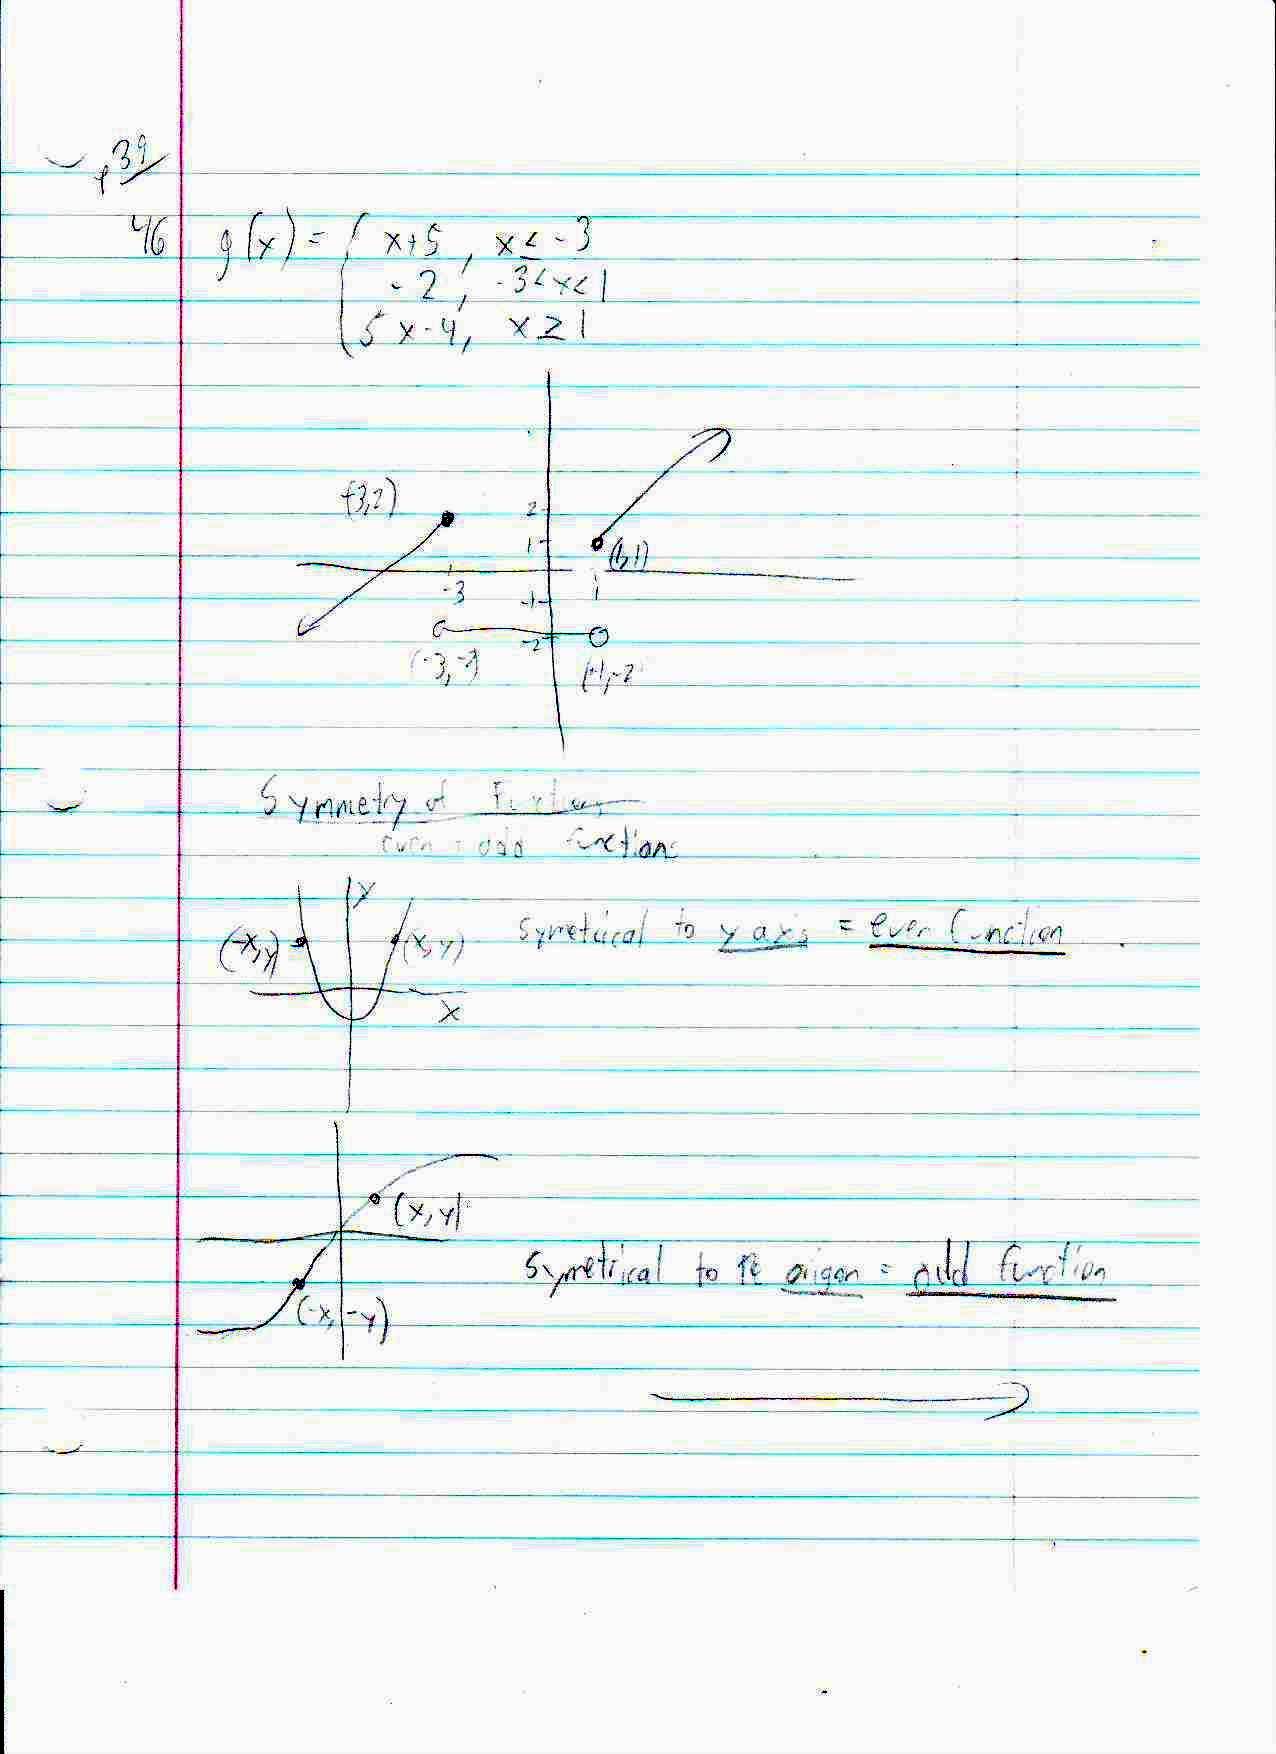 p39
46 g(x) = { x+5, x ≤ -3
-2, -3<x<1
5x-4, x ≥ 1
(-3,2)
2
1
(1,1)
-3
1
-1
-2
(-3,-2)
(1,-2
Symmetry of Functions
even + odd functions
y
(-x,y)
(x,y)
symetrical to y axis = even function
x
(x,y)
symetrical to the origon = odd function
(-x,-y)